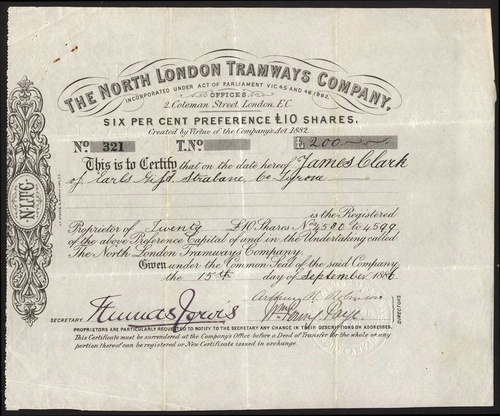 THE NORTH LONDON TRAMWAYS COMPANY,
INCORPORATED UNDER ACT OF PARLIAMENT VIC 45 AND 46 1882.
OFFICES.
2. Coleman Street London. E.C.
SIX PER CENT PREFERENCE £10 SHARES.
Created by Virtue of the Company's Act 1882.
No. 321 T.No. £ 200
This is to Certify that on the date hereof James Clark
of Strabane, Co Tyrone
is the Registered
Proprietor of Twenty £10 Shares No 4580 to 4599
of the above Preference Capital of and in the Undertaking called
The North London Tramways Company.
Given under the Common Seal of the said Company
the 15th day of September 1886
SECRETARY
DIRECTORS
PROPRIETORS ARE PARTICULARLY REQUESTED TO NOTIFY TO THE SECRETARY ANY CHANGE IN THEIR DESCRIPTIONS OR ADDRESSES.
This Certificate must be surrendered at the Company's Office before a Deed of Transfer for the whole or any
portion thereof can be registered or New Certificate issued in exchange.
N.L.T.C.